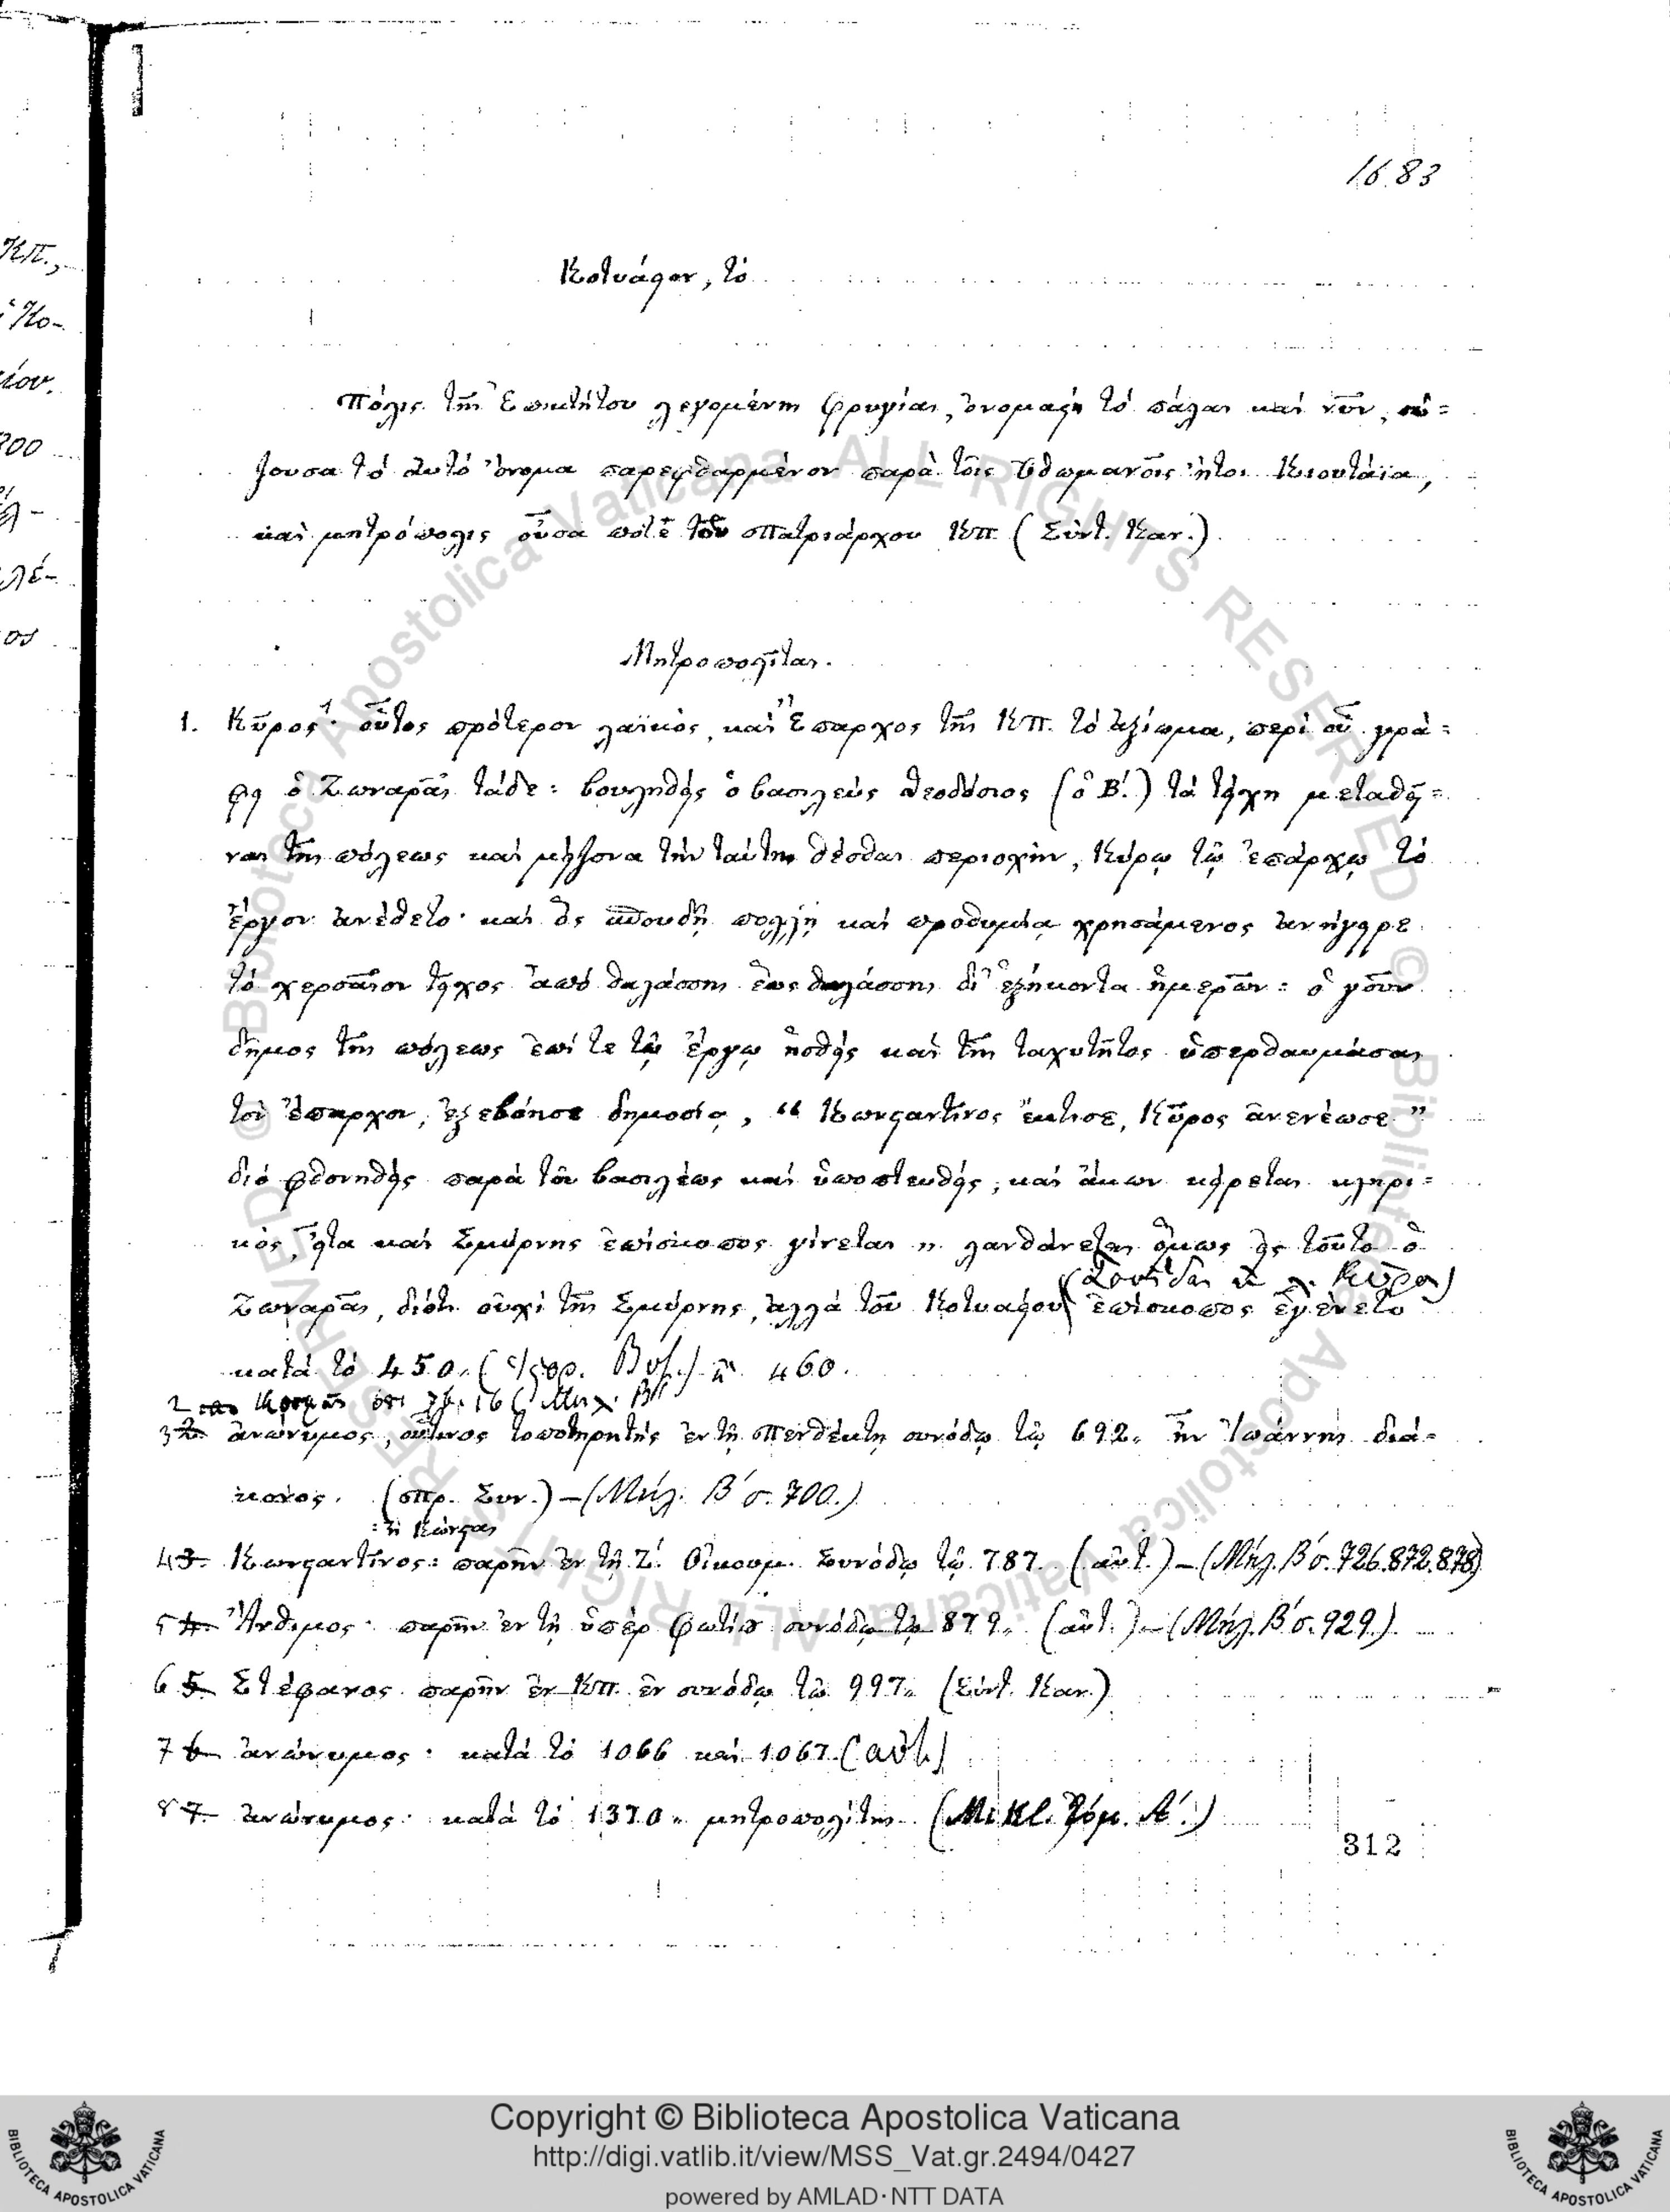 1683
Κοτυάειον, τό
Πόλις τῆς Ἐπικτήτου λεγομένης Φρυγίας, ὀνομαστὴ τὸ πάλαι καὶ νῦν, σώ=
ζουσα τὸ αὐτὸ ὄνομα παρεφθαρμένον παρὰ τοῖς Ὀθωμανοῖς ἤτοι Κιουτάϊα,
καὶ μητρόπολις οὖσα ποτὲ τοῦ Πατριάρχου Κπ. (Σύντ. Καν.)
Μητροπολῖται.
1. Κῦρος· οὗτος πρότερον λαϊκὸς, καὶ Ἔπαρχος τῆς Κπ. τὸ ἀξίωμα, περὶ οὗ γρά=
φει ὁ Ζωναρᾶς τάδε: βουληθεὶς ὁ βασιλεὺς Θεοδόσιος (ὁ Β΄.) τὰ τείχη μεταθεῖ=
ναι τῆς πόλεως καὶ μείζονα τὴν ταύτης θέσθαι περιοχὴν, Κύρῳ τῷ ἐπάρχῳ τὸ
ἔργον ἀνέθετο· καὶ ὃς σπουδῇ πολλῇ καὶ προθυμίᾳ χρησάμενος ἀνήγειρε
τὸ χερσαῖον τεῖχος ἀπὸ θαλάσσης ἕως θαλάσσης δι' ἑξήκοντα ἡμερῶν: ὁ γοῦν
δῆμος τῆς πόλεως ἐπί τε τῷ ἔργῳ ἡσθεὶς καὶ τῆς ταχυτῆτος ὑπερθαυμάσας
τὸν ἔπαρχον, ἐξεβόησε δημοσίᾳ, “ Κωνσταντῖνος ἔκτισε, Κῦρος ἀνενέωσε ”
διὸ φθονηθεὶς παρὰ τοῦ βασιλέως καὶ ὑποπτευθεὶς, καὶ ἄκων κείρεται κληρι=
κὸς, εἶτα καὶ Σμύρνης ἐπίσκοπος γίνεται „ λανθάνεται ὅμως εἰς τοῦτο ὁ
(Σουΐδας λ. Κῦρος)
Ζωναρᾶς, διότι οὐχὶ τῆς Σμύρνης, ἀλλὰ τοῦ Κοτυαείου ἐπίσκοπος ἐγένετο
κατὰ τὸ 450. ἢ 460.
2 Κοσμᾶς
3 2. ἀνώνυμος, οὗτινος τοποτηρητὴς ἐν τῇ Πενθέκτῃ συνόδῳ τῷ 692. ἦν Ἰωάννης διά=
κονος. (Πρ. Συν.) – (Μήλ. Β΄ σ. 700.)
ἢ Κώνστας
4 3. Κωνσταντῖνος: παρῆν ἐν τῇ Ζ΄. Οἰκουμ. Συνόδῳ τῷ 787. (αὐτ.) – (Μήλ. Β΄ σ. 726.872.878)
5 4. Ἄνθιμος· παρῆν ἐν τῇ ὑπὲρ Φωτίου συνόδῳ τῷ 879. (αὐτ.) – (Μήλ. Β΄ σ. 929.)
6 5. Στέφανος· παρῆν ἐν Κπ. ἐν συνόδῳ τῷ 997. (Σύντ. Καν.)
7 6 ἀνώνυμος· κατὰ τὸ 1066 καὶ 1067. (αὐτ.)
8 7. ἀνώνυμος· κατὰ τὸ 1370. μητροπολίτης. (Mikl. Τόμ. Α΄.)
312
Κπ.,
Κο-
ίου.
λέ-
Copyright © Biblioteca Apostolica Vaticana
http://digi.vatlib.it/view/MSS_Vat.gr.2494/0427
powered by AMLAD·NTT DATA
BIBLIOTECA APOSTOLICA VATICANA
BIBLIOTECA APOSTOLICA VATICANA